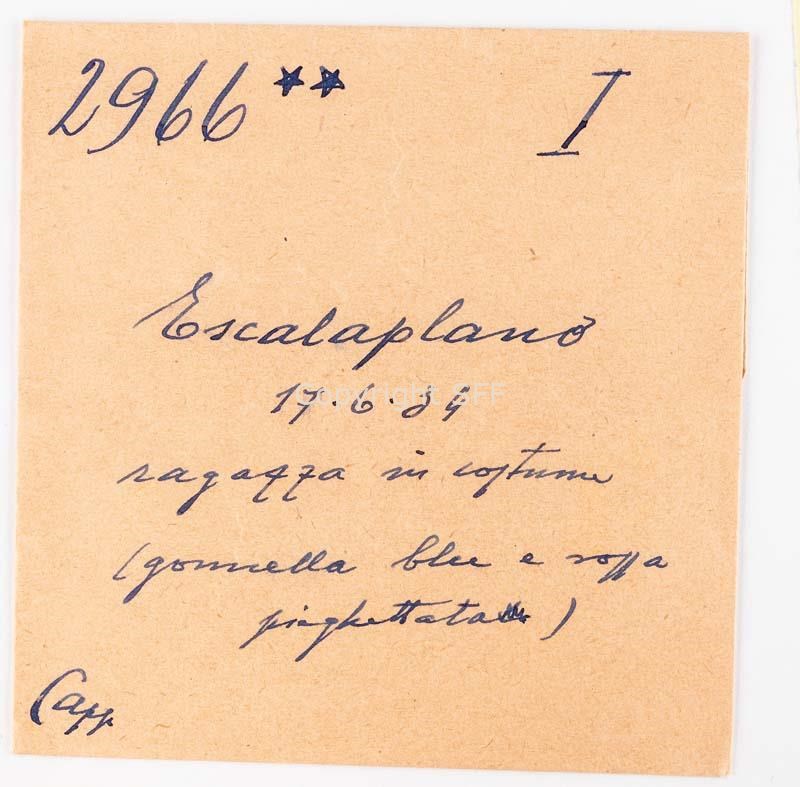 2966 ** I
Escalaplano
17.6.34
ragazza in costume
(gonnella blu e rossa
pieghettata)
Capp.
Copyright SFF